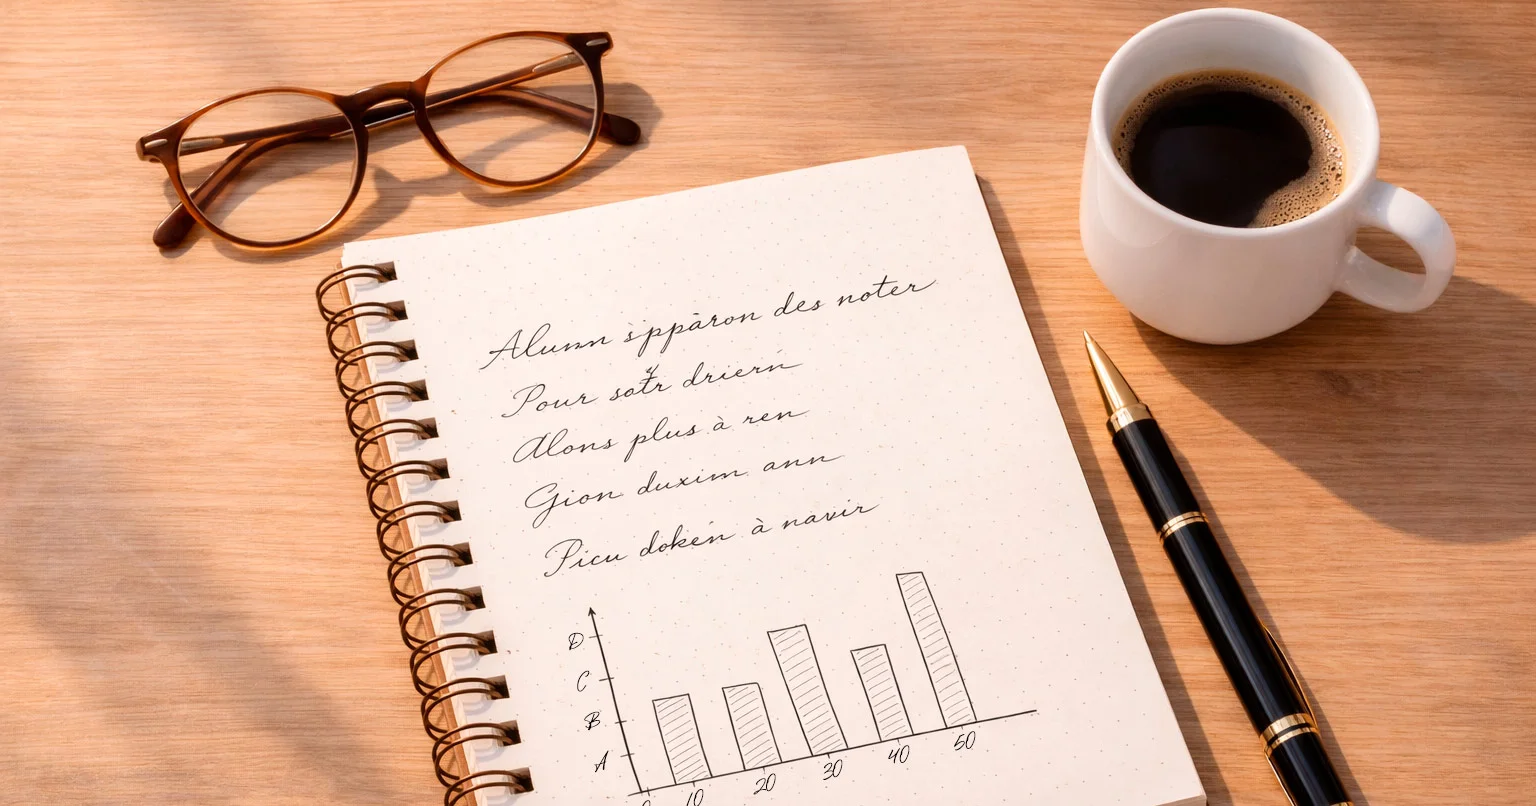 Alunn s'ppàron des noter
Pour sotr driern
Alons plus à ren
Gion duxim ann
Picu dokén à navir
D
C
B
A
10 20 30 40 50